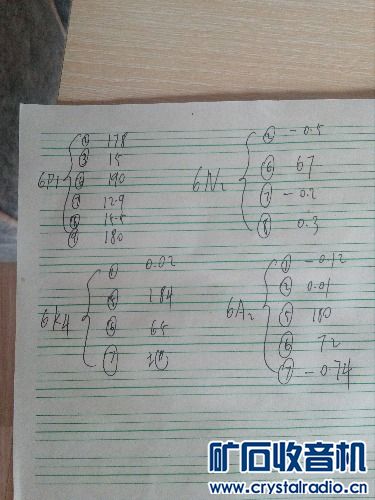 6P1
② 178
③ 15
190
⑦ 12.9
15.5
⑨ 180
6N2
② -0.5
⑥ 67
⑦ -0.2
⑧ 0.3
6K4
① 0.02
⑤ 184
⑥ 65
⑦
6A2
① -0.12
② 0.01
⑤ 180
⑥ 72
⑦ -0.74
矿石收音机
www.crystalradio.cn